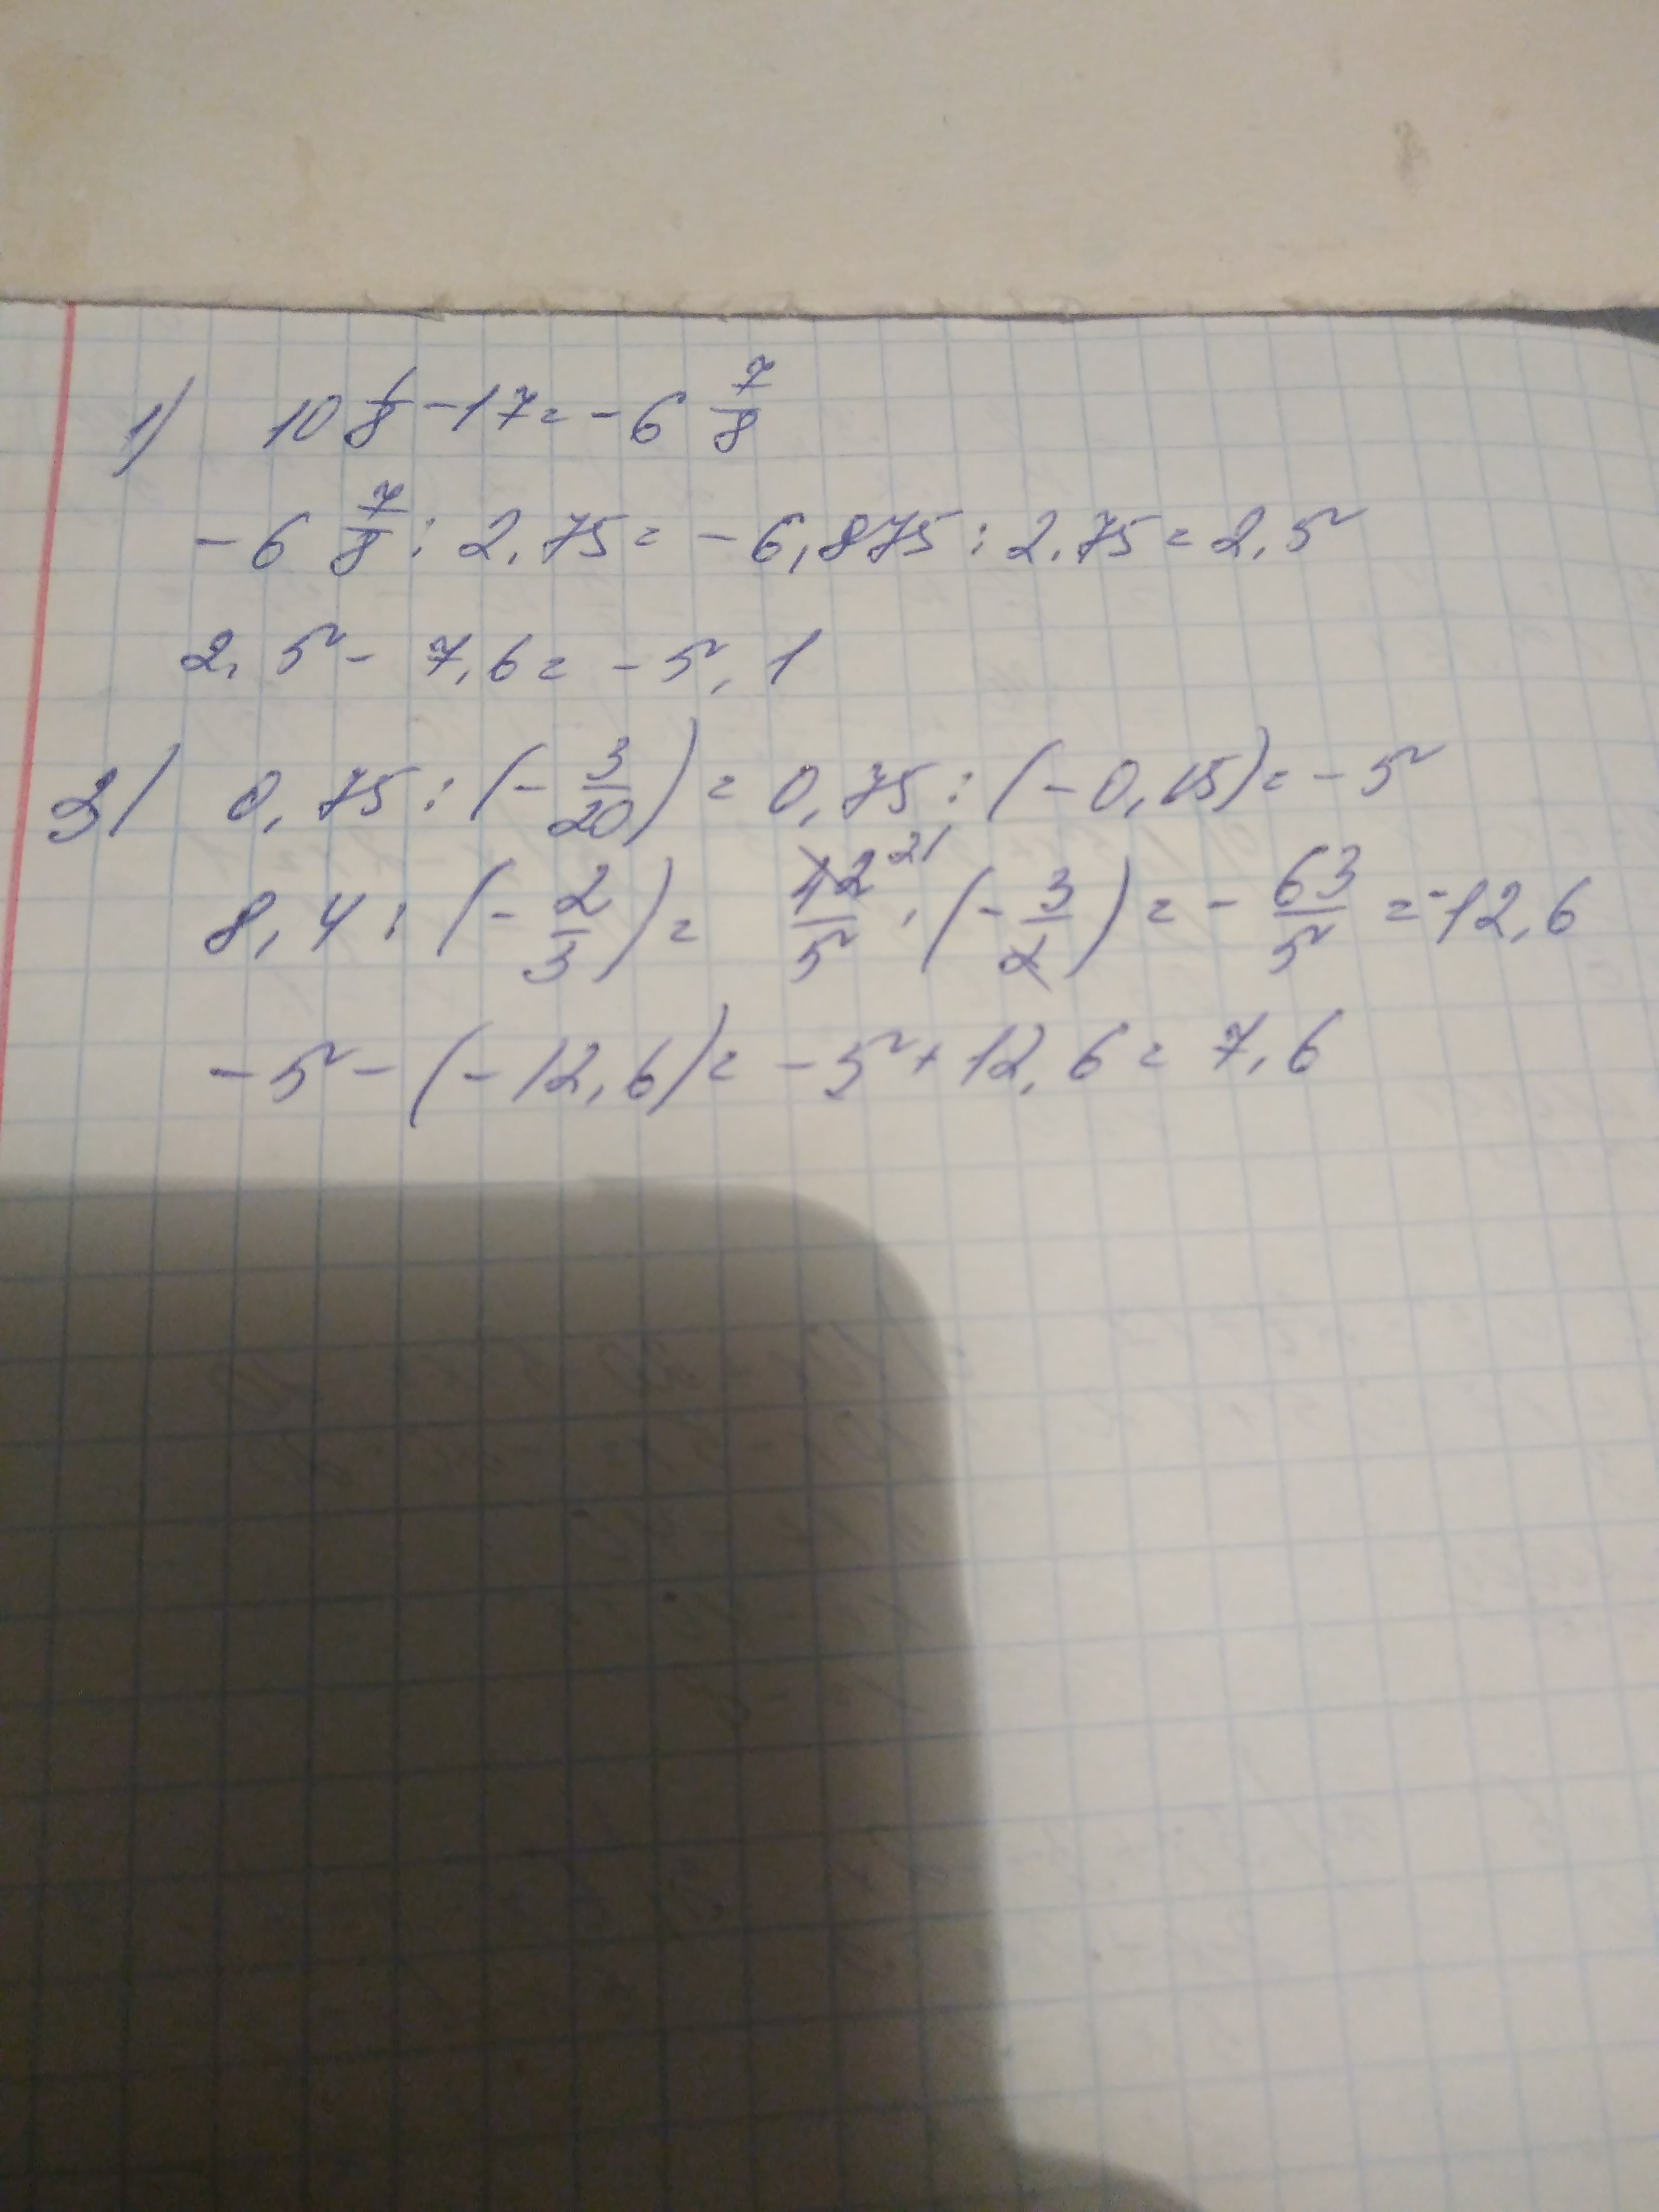 1) 10 1/8 - 17 = - 6 7/8
- 6 7/8 : 2,75 = - 6,875 : 2,75 = 2,5
2,5 - 7,6 = - 5,1
3) 0,75 : (- 3/20) = 0,75 : (- 0,15) = - 5
8,4 : (- 2/3) = 42/5 21 · (- 3/2) = - 63/5 = -12,6
- 5 - (- 12,6) = - 5 + 12,6 = 7,6